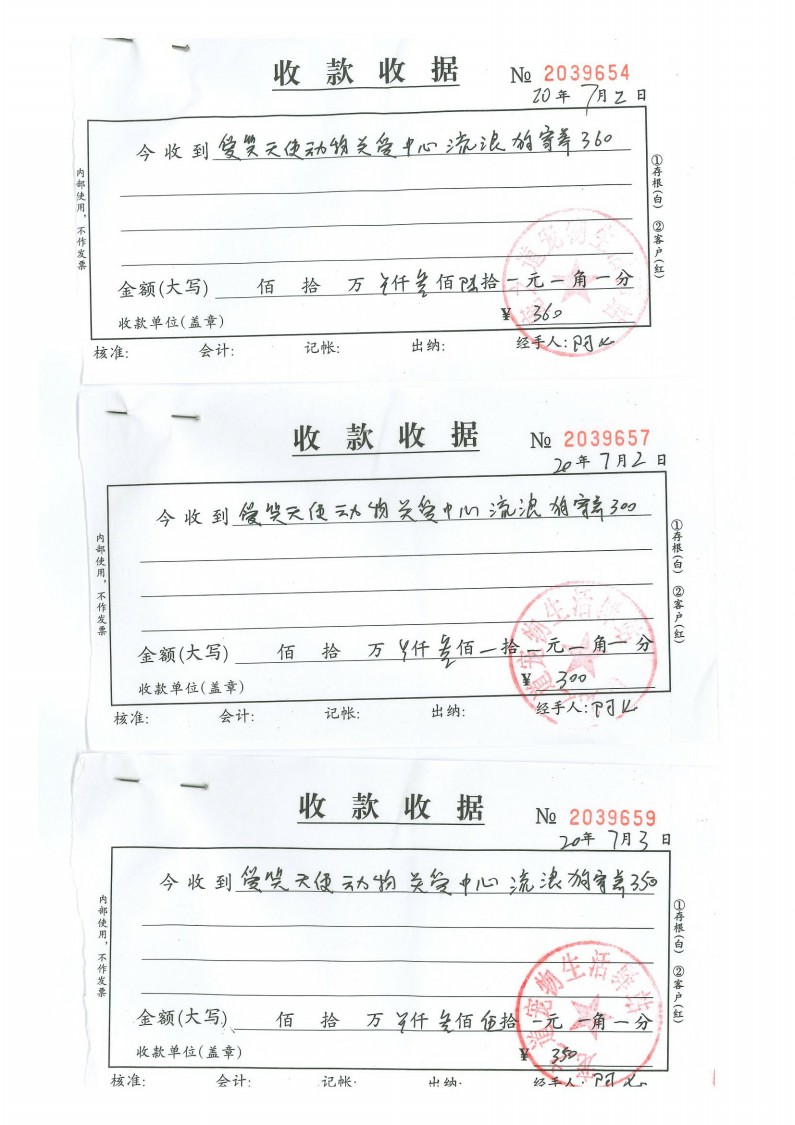 收款收据 № 2039654
20年7月2日
今收到 爱笑天使动物关爱中心流浪狗寄养360
金额(大写) 佰 拾 万 ¥仟叁佰陆拾一元一角一分
收款单位(盖章) ¥ 360
核准: 会计: 记帐: 出纳: 经手人: 阿
内部使用,不作发票
①存根(白) ②客户(红)
收款收据 № 2039657
20年7月2日
今收到 爱笑天使动物关爱中心流浪狗寄养300
金额(大写) 佰 拾 万 ¥仟叁佰一拾一元一角一分
收款单位(盖章) ¥ 300
核准: 会计: 记帐: 出纳: 经手人: 阿
内部使用,不作发票
①存根(白) ②客户(红)
道宠物生活驿站
收款收据 № 2039659
20年7月3日
今收到 爱笑天使动物关爱中心流浪狗寄养350
金额(大写) 佰 拾 万 ¥仟叁佰伍拾一元一角一分
收款单位(盖章) ¥ 350
核准: 会计: 记帐: 出纳: 经手人: 阿
内部使用,不作发票
①存根(白) ②客户(红)
宠道宠物生活驿站